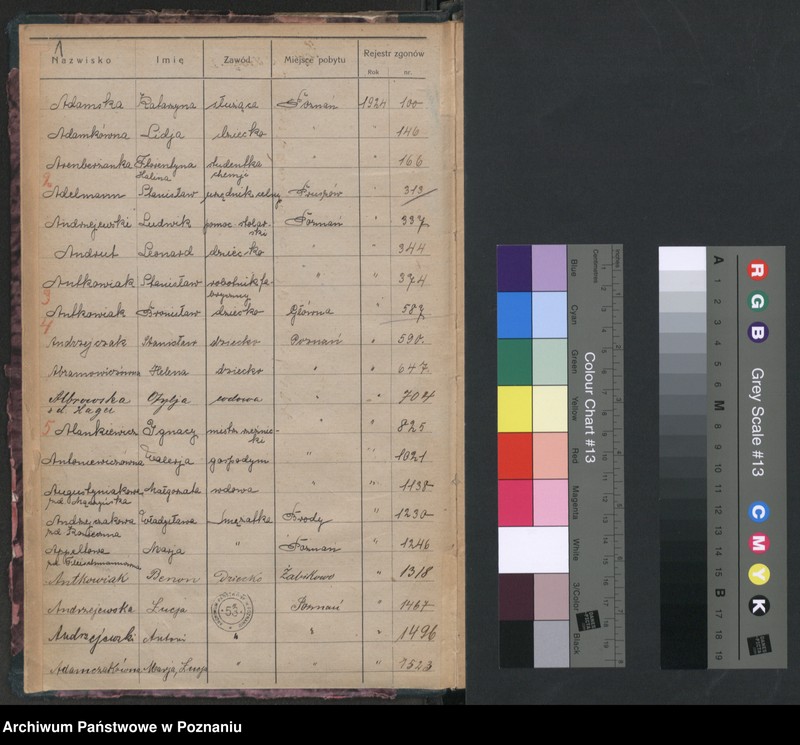 1
Nazwisko Imię Zawód Miejsce pobytu Rejestr zgonów
Rok nr.
Adamska Katarzyna służąca Poznań 1924 100
Adamkówna Lidja dziecko " " 146
Florentyna studentka " " 166
Halina chemji
2
Adelmann Stanisław urzędnik " 313
Andrzejewski Ludwik pomoc Poznań " 337
Andrut Leonard dziecko " " 344
Antkowiak Stanisław robotnik fa- " " 374
bryczny
3
Antkowiak Bronisław dziecko Główna " 587
4
Andrzejczak Stanisław dziecko Poznań " 590
Helena dziecko " " 647
wdowa " " 704
5 Ignacy mistrz " " 825
Antoniewiczówna Walerja gospodyni " " 1021
Małgorzata wdowa " " 1138
Władysława mężatka Brody " 1230
Marja " Poznań " 1246
Antkowiak Benon Dziecko Żabikowo " 1318
Andrzejewska Łucja Poznań " 1467
53
Andrzejewski Antoni " " " 1496
Adamczakówna Marja, Łucja " " " 1523
Blue
Cyan
Green
Yellow
Red
Magenta
White
3/Color
Black
Centimetres
Inches
Colour Chart #13
A 1 2 3 4 5 6 M 8 9 10 11 12 13 14 15 B 17 18 19
R G B
Grey Scale #13
C M Y K
Archiwum Państwowe w Poznaniu